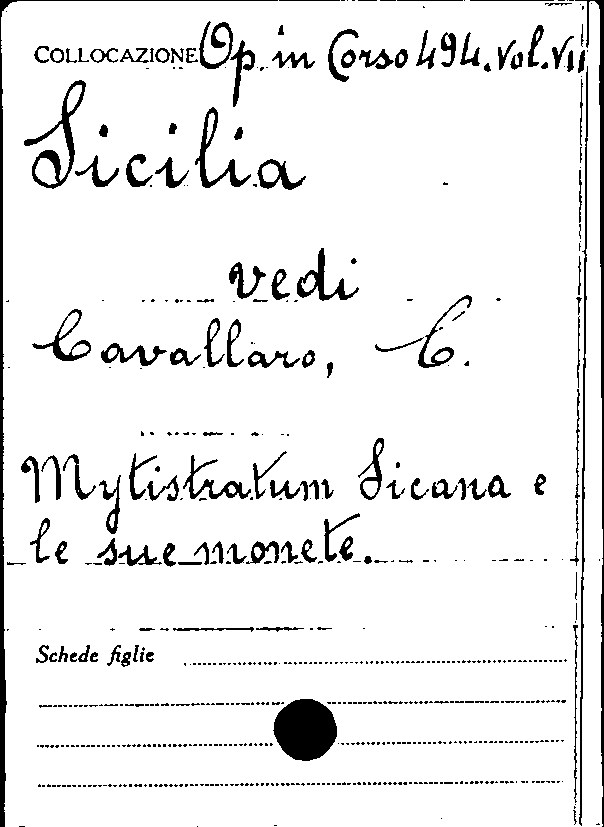 COLLOCAZIONE Op. in Corso 494. Vol. VII
Sicilia
vedi
Cavallaro, C.
Mytistratum Sicana e
le sue monete.
Schede figlie